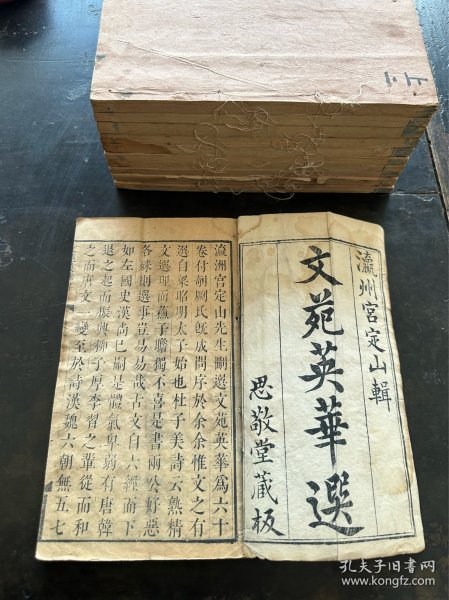 瀛州宮定山輯
文苑英華選
思敬堂藏板
瀛洲宮定山先生刪選文苑英華爲六十
卷付剞劂氏旣成問序於余余惟文之有
選自梁昭明太子始也杜子美詩云熟精
文選理而蘇子瞻獨不喜是書兩公好惡
各殊則選事豈易易哉古文自六經而下
如左國史漢尚已嗣是體氣卑弱有唐韓
退之起而振興柳子厚李習之輩從而和
之而唐文一變至於詩漢魏六朝無五七
孔夫子旧书网
www.kongfz.com